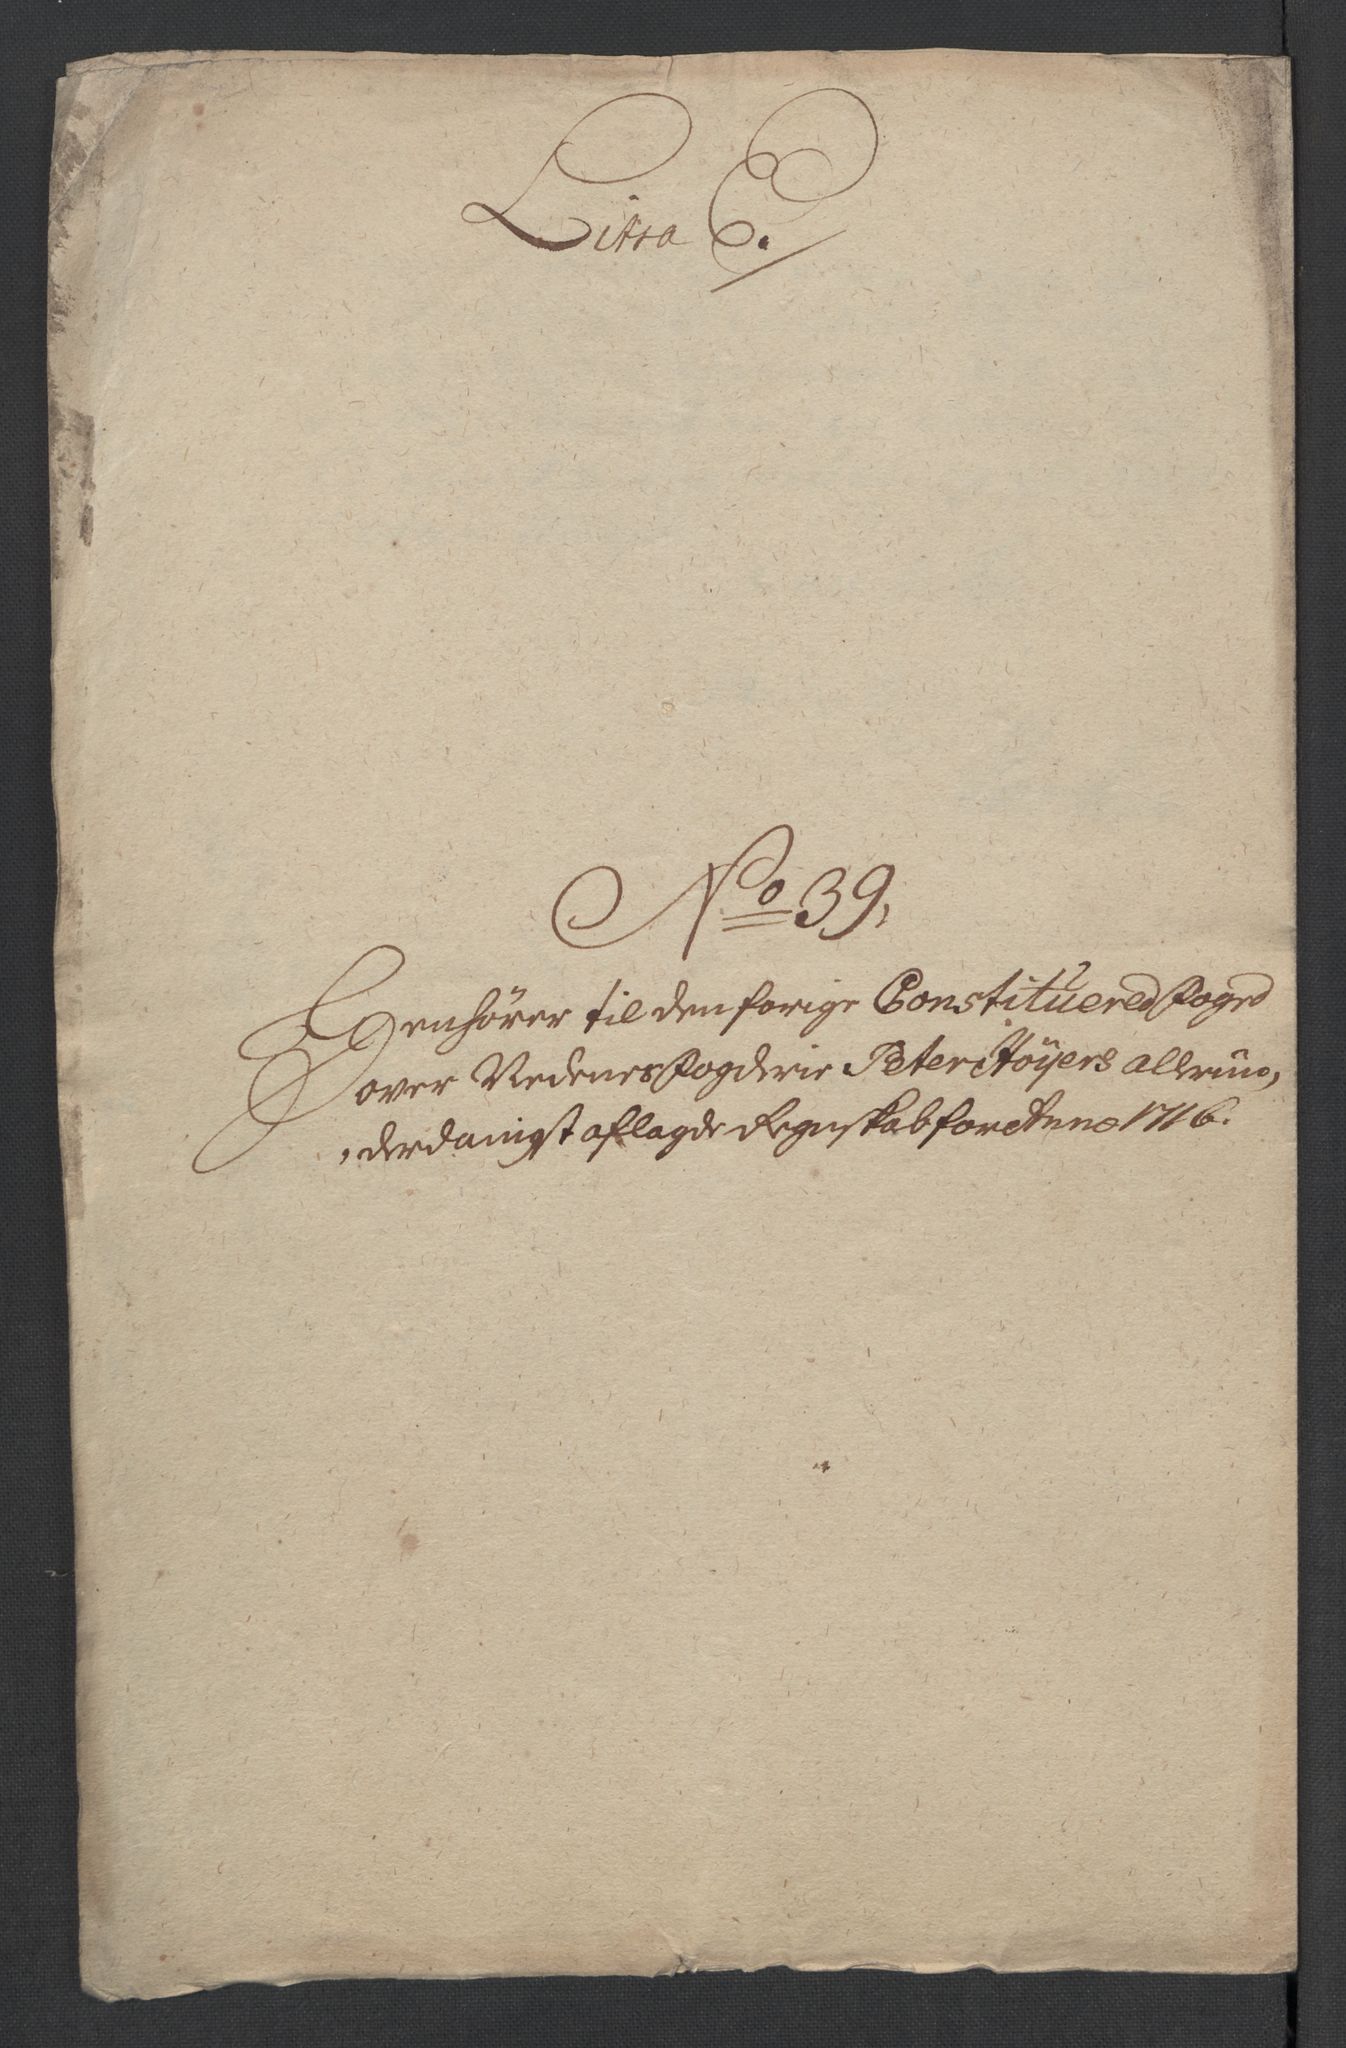 Litra C.
No 39,
Henhörer til den forige Constitüered Foged
over Nedenes Fogderie Peter Höÿers allerün,
,derdanigst aflagde Regnskab for Anno 1716.